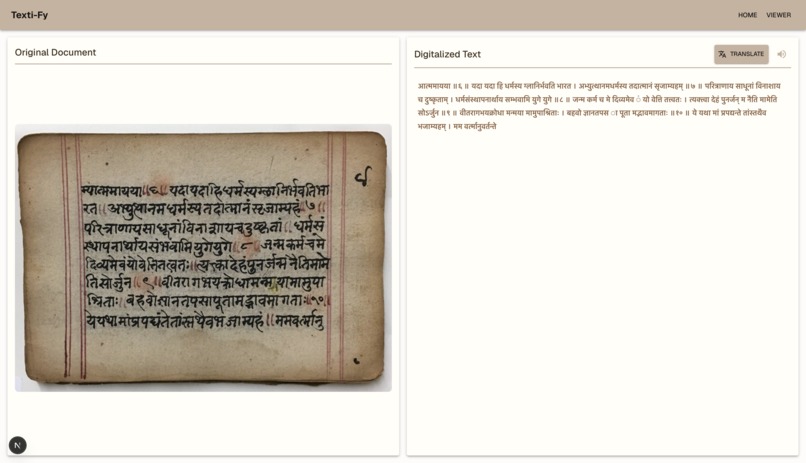 Texti-Fy
HOME VIEWER
Original Document
म्यात्ममायया॥६॥ यदायदाहिधर्मस्यग्लानिर्भवतिभा
रत॥ अभ्युत्थानमधर्मस्यतदात्मानंसृजाम्यहं॥७॥
परित्राणायसाधूनांविनाशायचदुष्कृतां॥ धर्मसं
स्थापनार्थायसंभवामियुगेयुगे॥८॥ जन्मकर्मचमे
दिव्यमेवंयोवेत्तितत्वतः॥त्यक्त्कादेहंपुनर्जन्मनैतिमामे
तिसोर्जुन॥९॥वीतरागभयक्रोधामन्मयामामुपा
श्रिताः॥ बहवोज्ञानतपसापूतामद्भावमागताः॥१०॥
येयथामांप्रपद्यंतेतांस्तथैवभजाम्यहं॥ममवर्त्मानु
Digitalized Text
TRANSLATE
आत्ममायया ॥६॥ यदा यदा हि धर्मस्य ग्लानिर्भवति भारत । अभ्युत्थानमधर्मस्य तदात्मानं सृजाम्यहम् ॥७॥ परित्राणाय साधूनां विनाशाय
च दुष्कृताम् । धर्मसंस्थापनार्थाय सम्भवामि युगे युगे ॥८॥ जन्म कर्म च मे दिव्यमेव ं यो वेत्ति तत्वतः । त्यक्त्वा देहं पुनर्जन् म नैति मामेति
सोऽर्जुन ॥९॥ वीतरागभयक्रोधा मन्मया मामुपाश्रिताः । बहवो ज्ञानतपस ा पूता मद्भावमागताः ॥१०॥ ये यथा मां प्रपद्यन्ते तांस्तथैव
भजाम्यहम् । मम वर्त्मानुवर्तन्ते
N